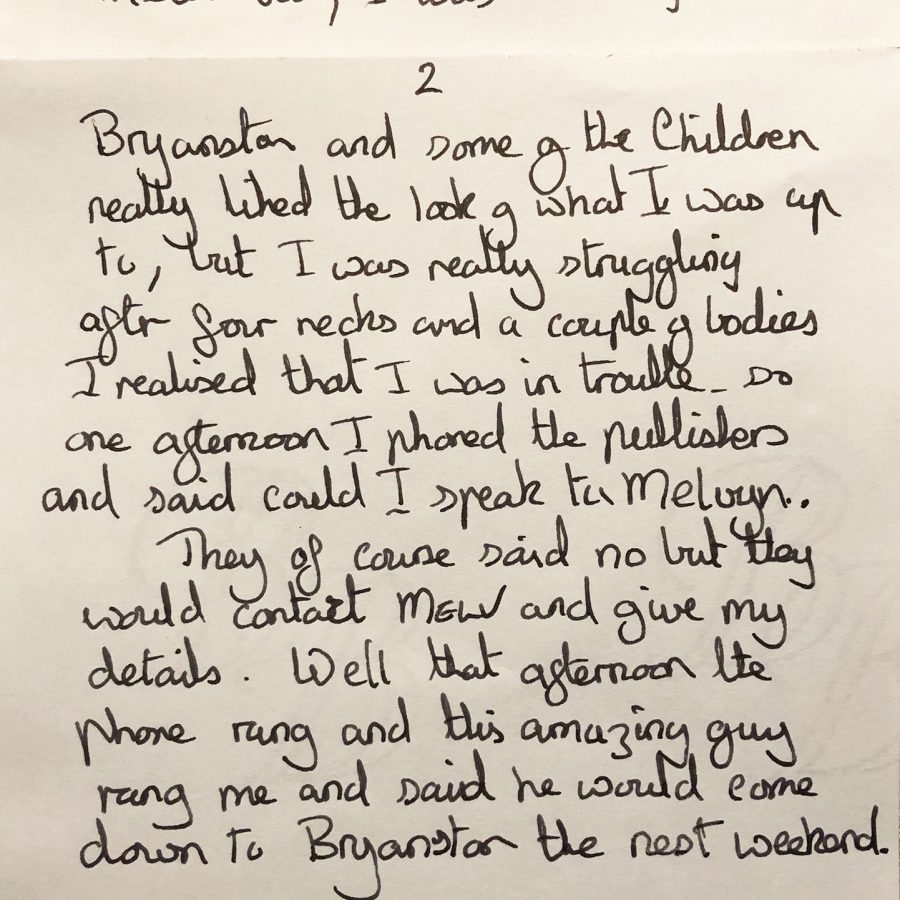 2
Bryanston and some of the Children
really liked the look of what I was up
to, but I was really struggling
after four necks and a couple of bodies
I realised that I was in trouble - so
one afternoon I phoned the publishers
and said could I speak to Melvyn..
They of course said no but they
would contact MELV and give my
details. Well that afternoon the
phone rang and this amazing guy
rang me and said he would come
down to Bryanston the next weekend.